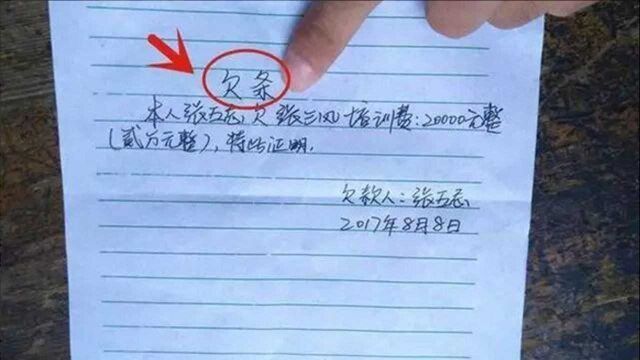 欠条
本人张五忌,欠张三风培训费:20000元整
(贰万元整),特此证明.
欠款人:张五忌
2017年8月8日